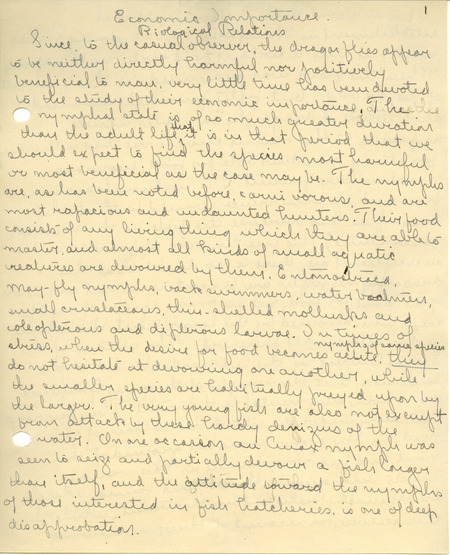 1
Economic Importance.
Biological Relations
Since, to the casual observer, the dragon flies appear
to be neither directly harmful nor positively
beneficial to man, very little time has been devoted
to the study of their economic importance. The
nymphal state is of so much greater duration
than the adult life, that
it is in that period that we
should expect to find the species most harmful
or most beneficial as the case may be. The nymphs
are, as has been noted before, carnivorous, and are
most rapacious and undaunted hunters. Their food
consists of any living thing which they are able to
master, and almost all kinds of small aquatic
creatures are devoured by them. Entomostraca,
may-fly nymphs, back swimmers, water boatmen,
small crustaceans, thin-shelled mollusks and
coleopterous and dipterous larvae. In times of
nymphs of same species
stress, when the desire for food becomes acute, they
do not hesitate at devouring one another, while
the smaller species are habitually preyed upon by
the larger. The very young fish are also not exempt
from attack by these hardy denizens of the
water. On one occasion an Anax nymph was
seen to seize and partially devour a fish larger
than itself, and the attitude toward the nymphs
of those interested in fish hatcheries, is one of deep
disapprobation.